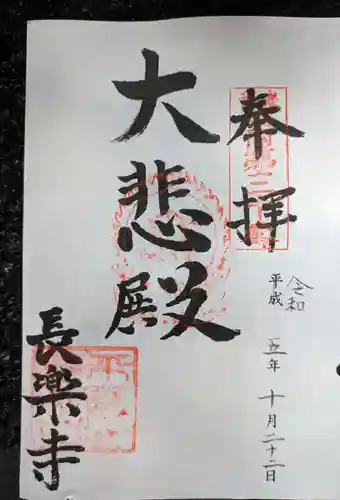 奉拝
令和
平成 五年 十月二十二日
大悲殿
長樂寺